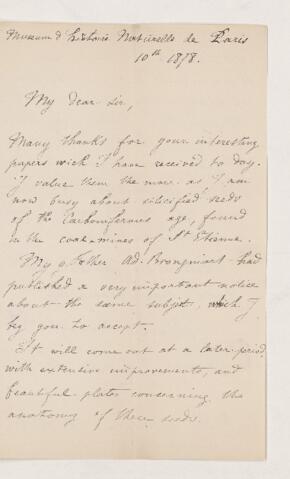 Museum d'histoire Naturelle de Paris
10th 1878.
My dear Sir,
Many thanks for your interesting
papers wich I have received to day.
I value them the more as I am
now busy about silicified seeds
of the Carboniferous age, found
in the coal-mines of St Etienne.
My g. Father Ad. Brongniart had
published a very important notice
about the same subject, which I
beg you to accept.
It will come out at a later period
with extensive improvements, and
beautiful plates concerning the
anatomy of these seeds.